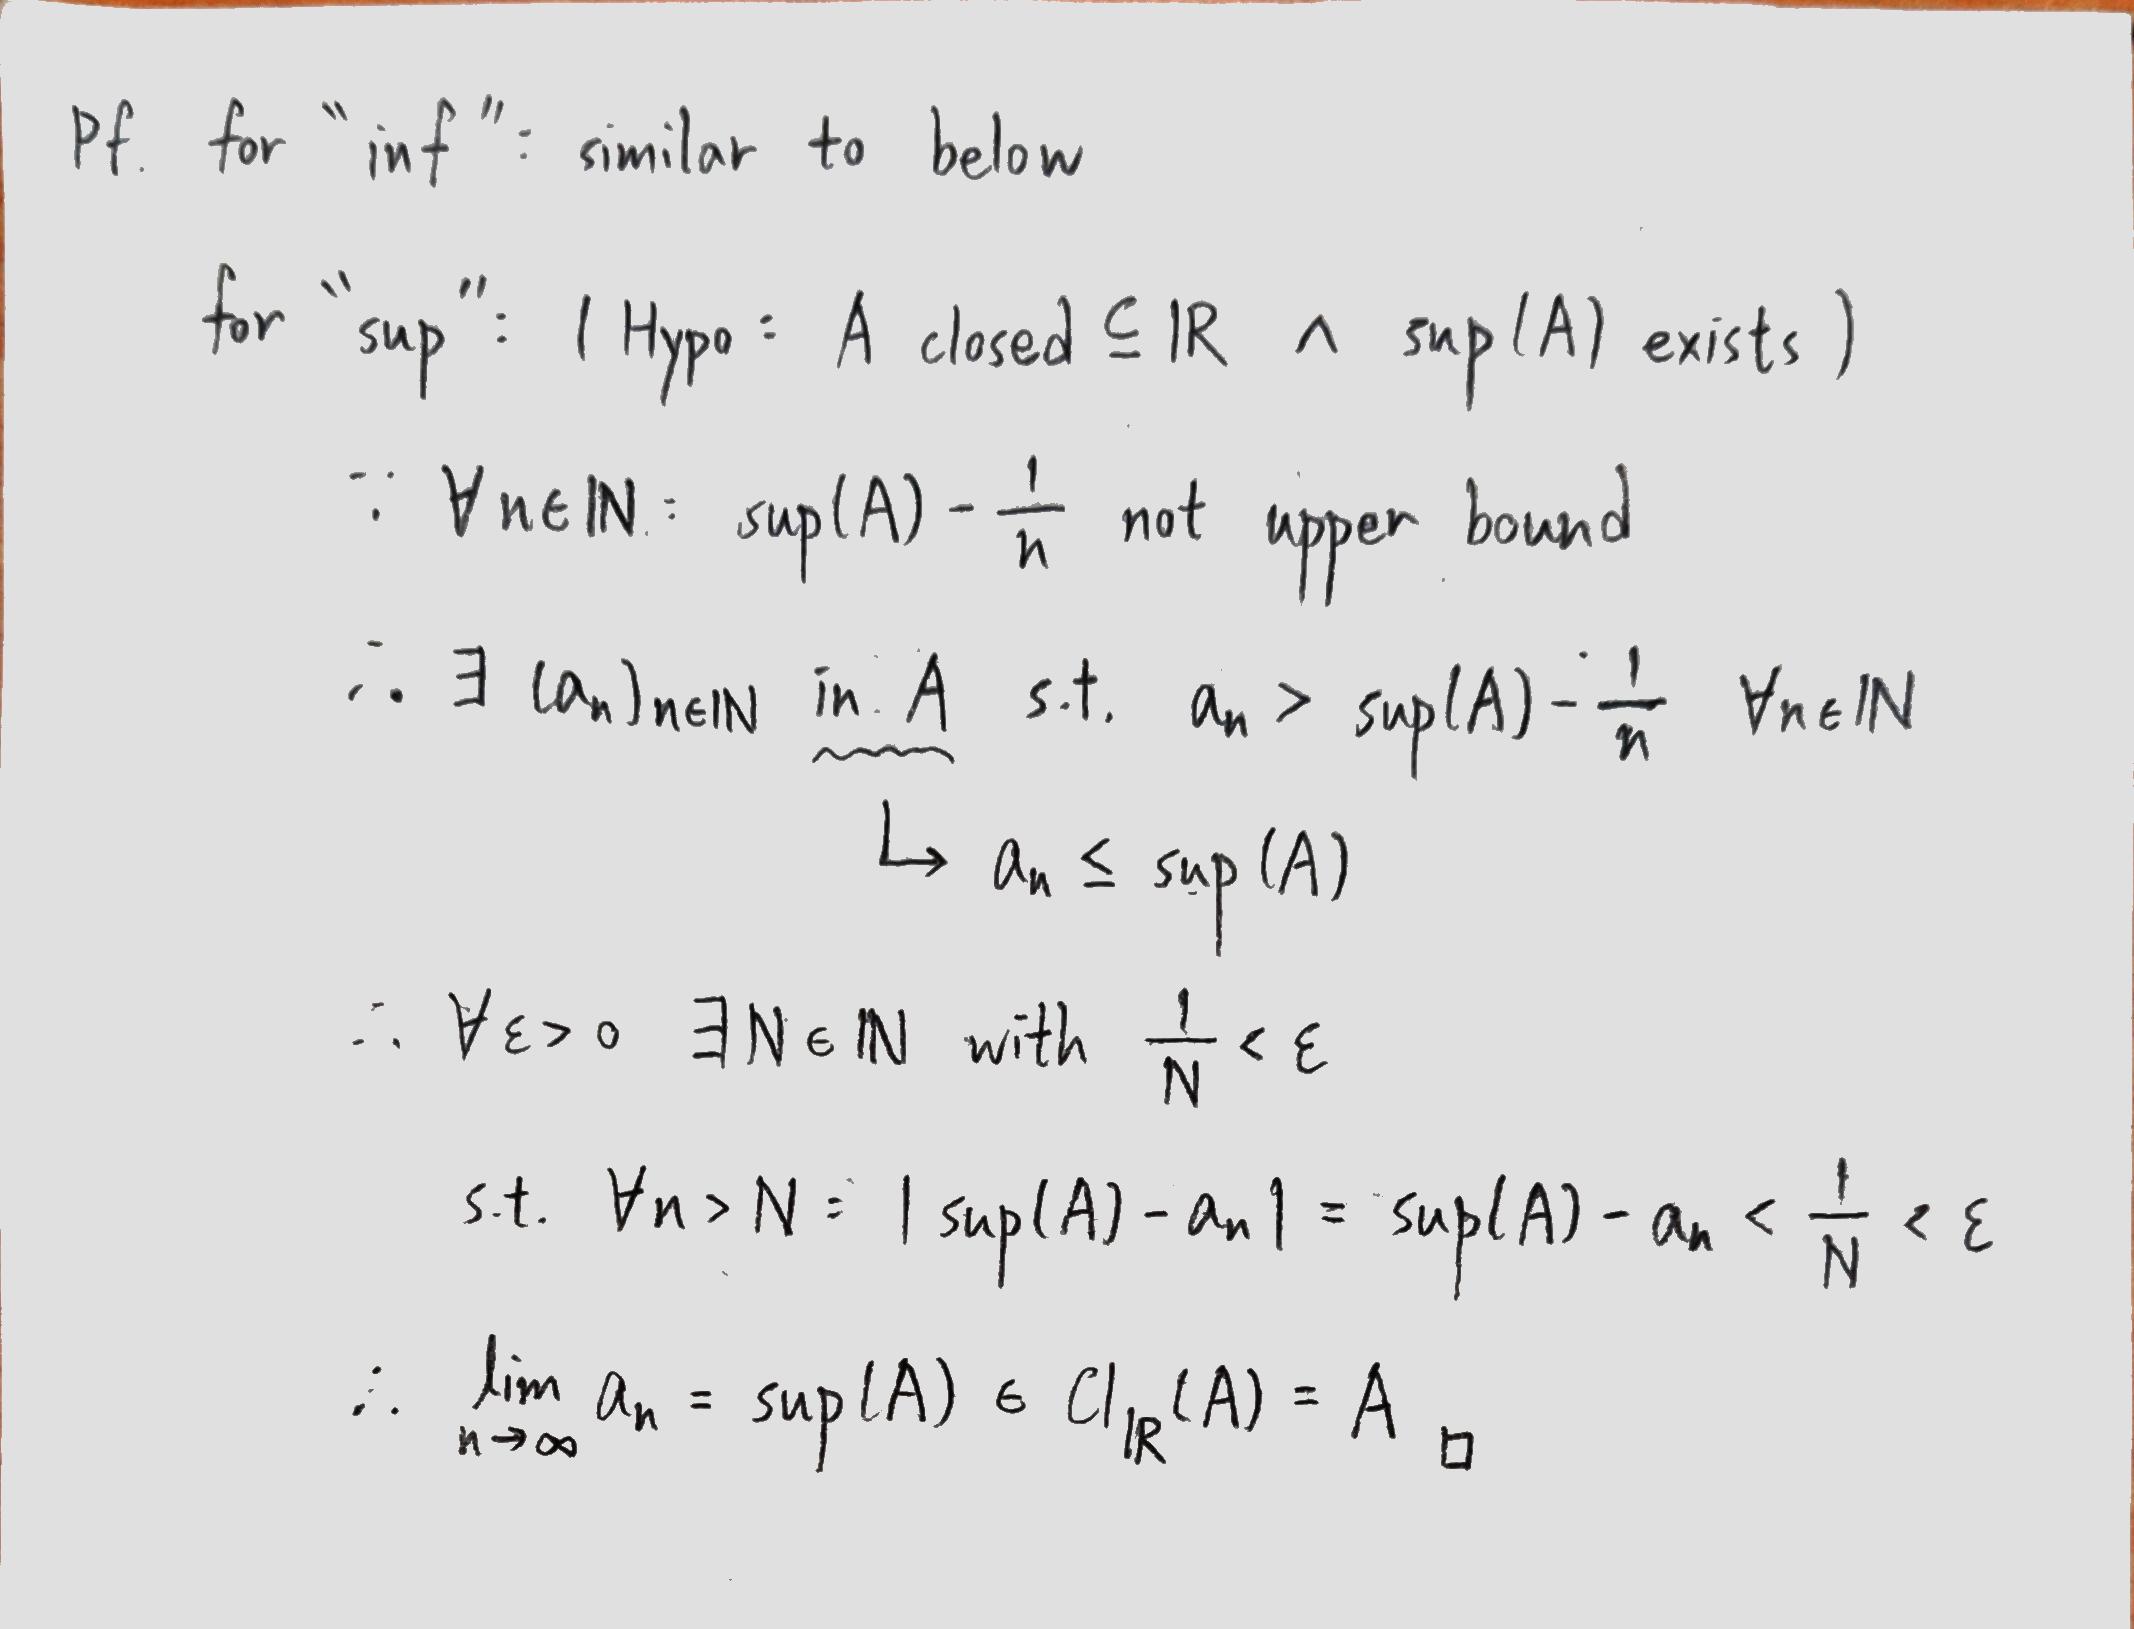 Pf. for "inf": similar to below
for "sup": (Hypo: A closed ⊆ ℝ ∧ sup(A) exists)
∵ ∀n∈ℕ: sup(A) - 1/n not upper bound
∴ ∃ (aₙ)ₙ∈ℕ in A s.t. aₙ > sup(A) - 1/n ∀n∈ℕ
↳ aₙ ≤ sup(A)
∴ ∀ε>0 ∃N∈ℕ with 1/N < ε
s.t. ∀n>N: |sup(A) - aₙ| = sup(A) - aₙ < 1/N < ε
∴ lim n→∞ aₙ = sup(A) ∈ Cl_ℝ(A) = A □